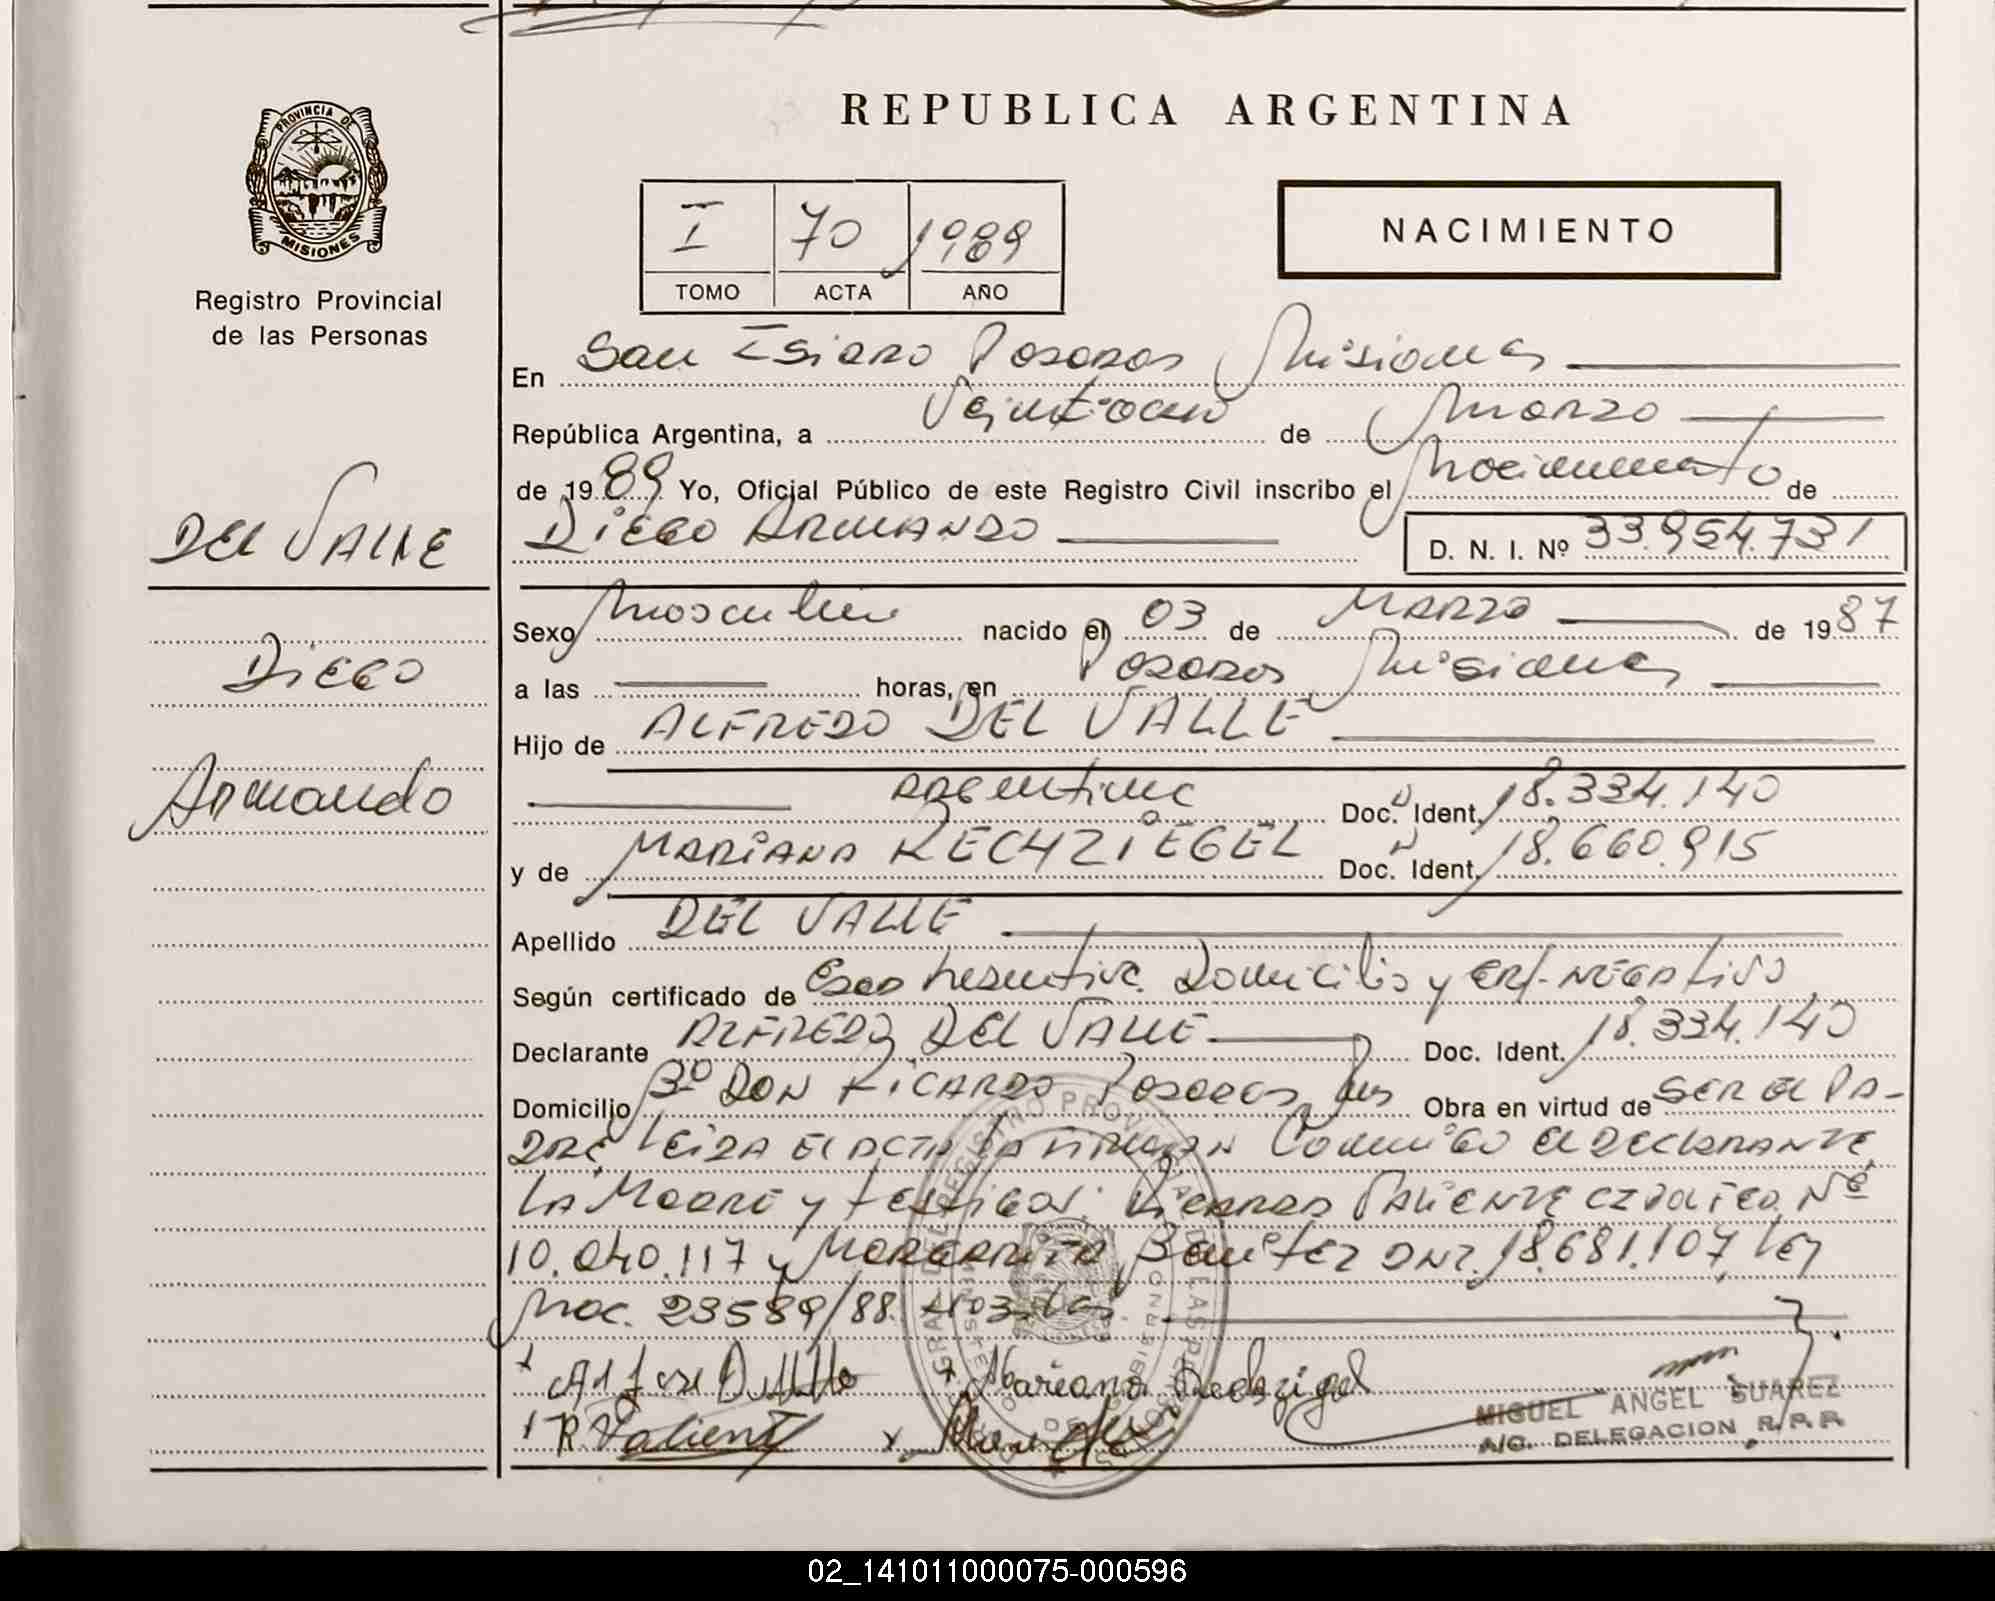 REPUBLICA ARGENTINA
PROVINCIA DE
MISIONES
Registro Provincial
de las Personas
I 70 1989
TOMO ACTA AÑO
NACIMIENTO
En San Isidro Posadas Misiones
República Argentina, a Veintiocho de Marzo
de 1989 Yo, Oficial Público de este Registro Civil inscribo el Nacimiento de
DIEGO ARMANDO D. N. I. Nº 33.954.731
DEL VALLE
Diego
Armando
Sexo Masculino nacido el 03 de MARZO de 1987
a las horas, en Posadas Misiones
Hijo de ALFREDO DEL VALLE
argentino Doc. Ident. 18.334.140
y de MARIANA RECHZIEGEL Doc. Ident. 18.660.915
Apellido DEL VALLE
Según certificado de Domicilio y CERT. NEGATIVO
Declarante ALFREDO DEL VALLE Doc. Ident. 18.334.140
Domicilio Bº DON RICARDO Posadas Mns Obra en virtud de SER EL PA-
DRE, LEIDA EL ACTA LA FIRMAN Conmigo el DECLARANTE,
LA MADRE y testigos: Ricardo VALIENTE Nº
10.040.117 y MARGARITA Benitez DNI. 18.681.107, ley
Nac. 23589/88
Mariana Rechzigel
R Valiente
MIGUEL ANGEL SUAREZ
A/C. DELEGACION R.P.P.
02_141011000075-000596